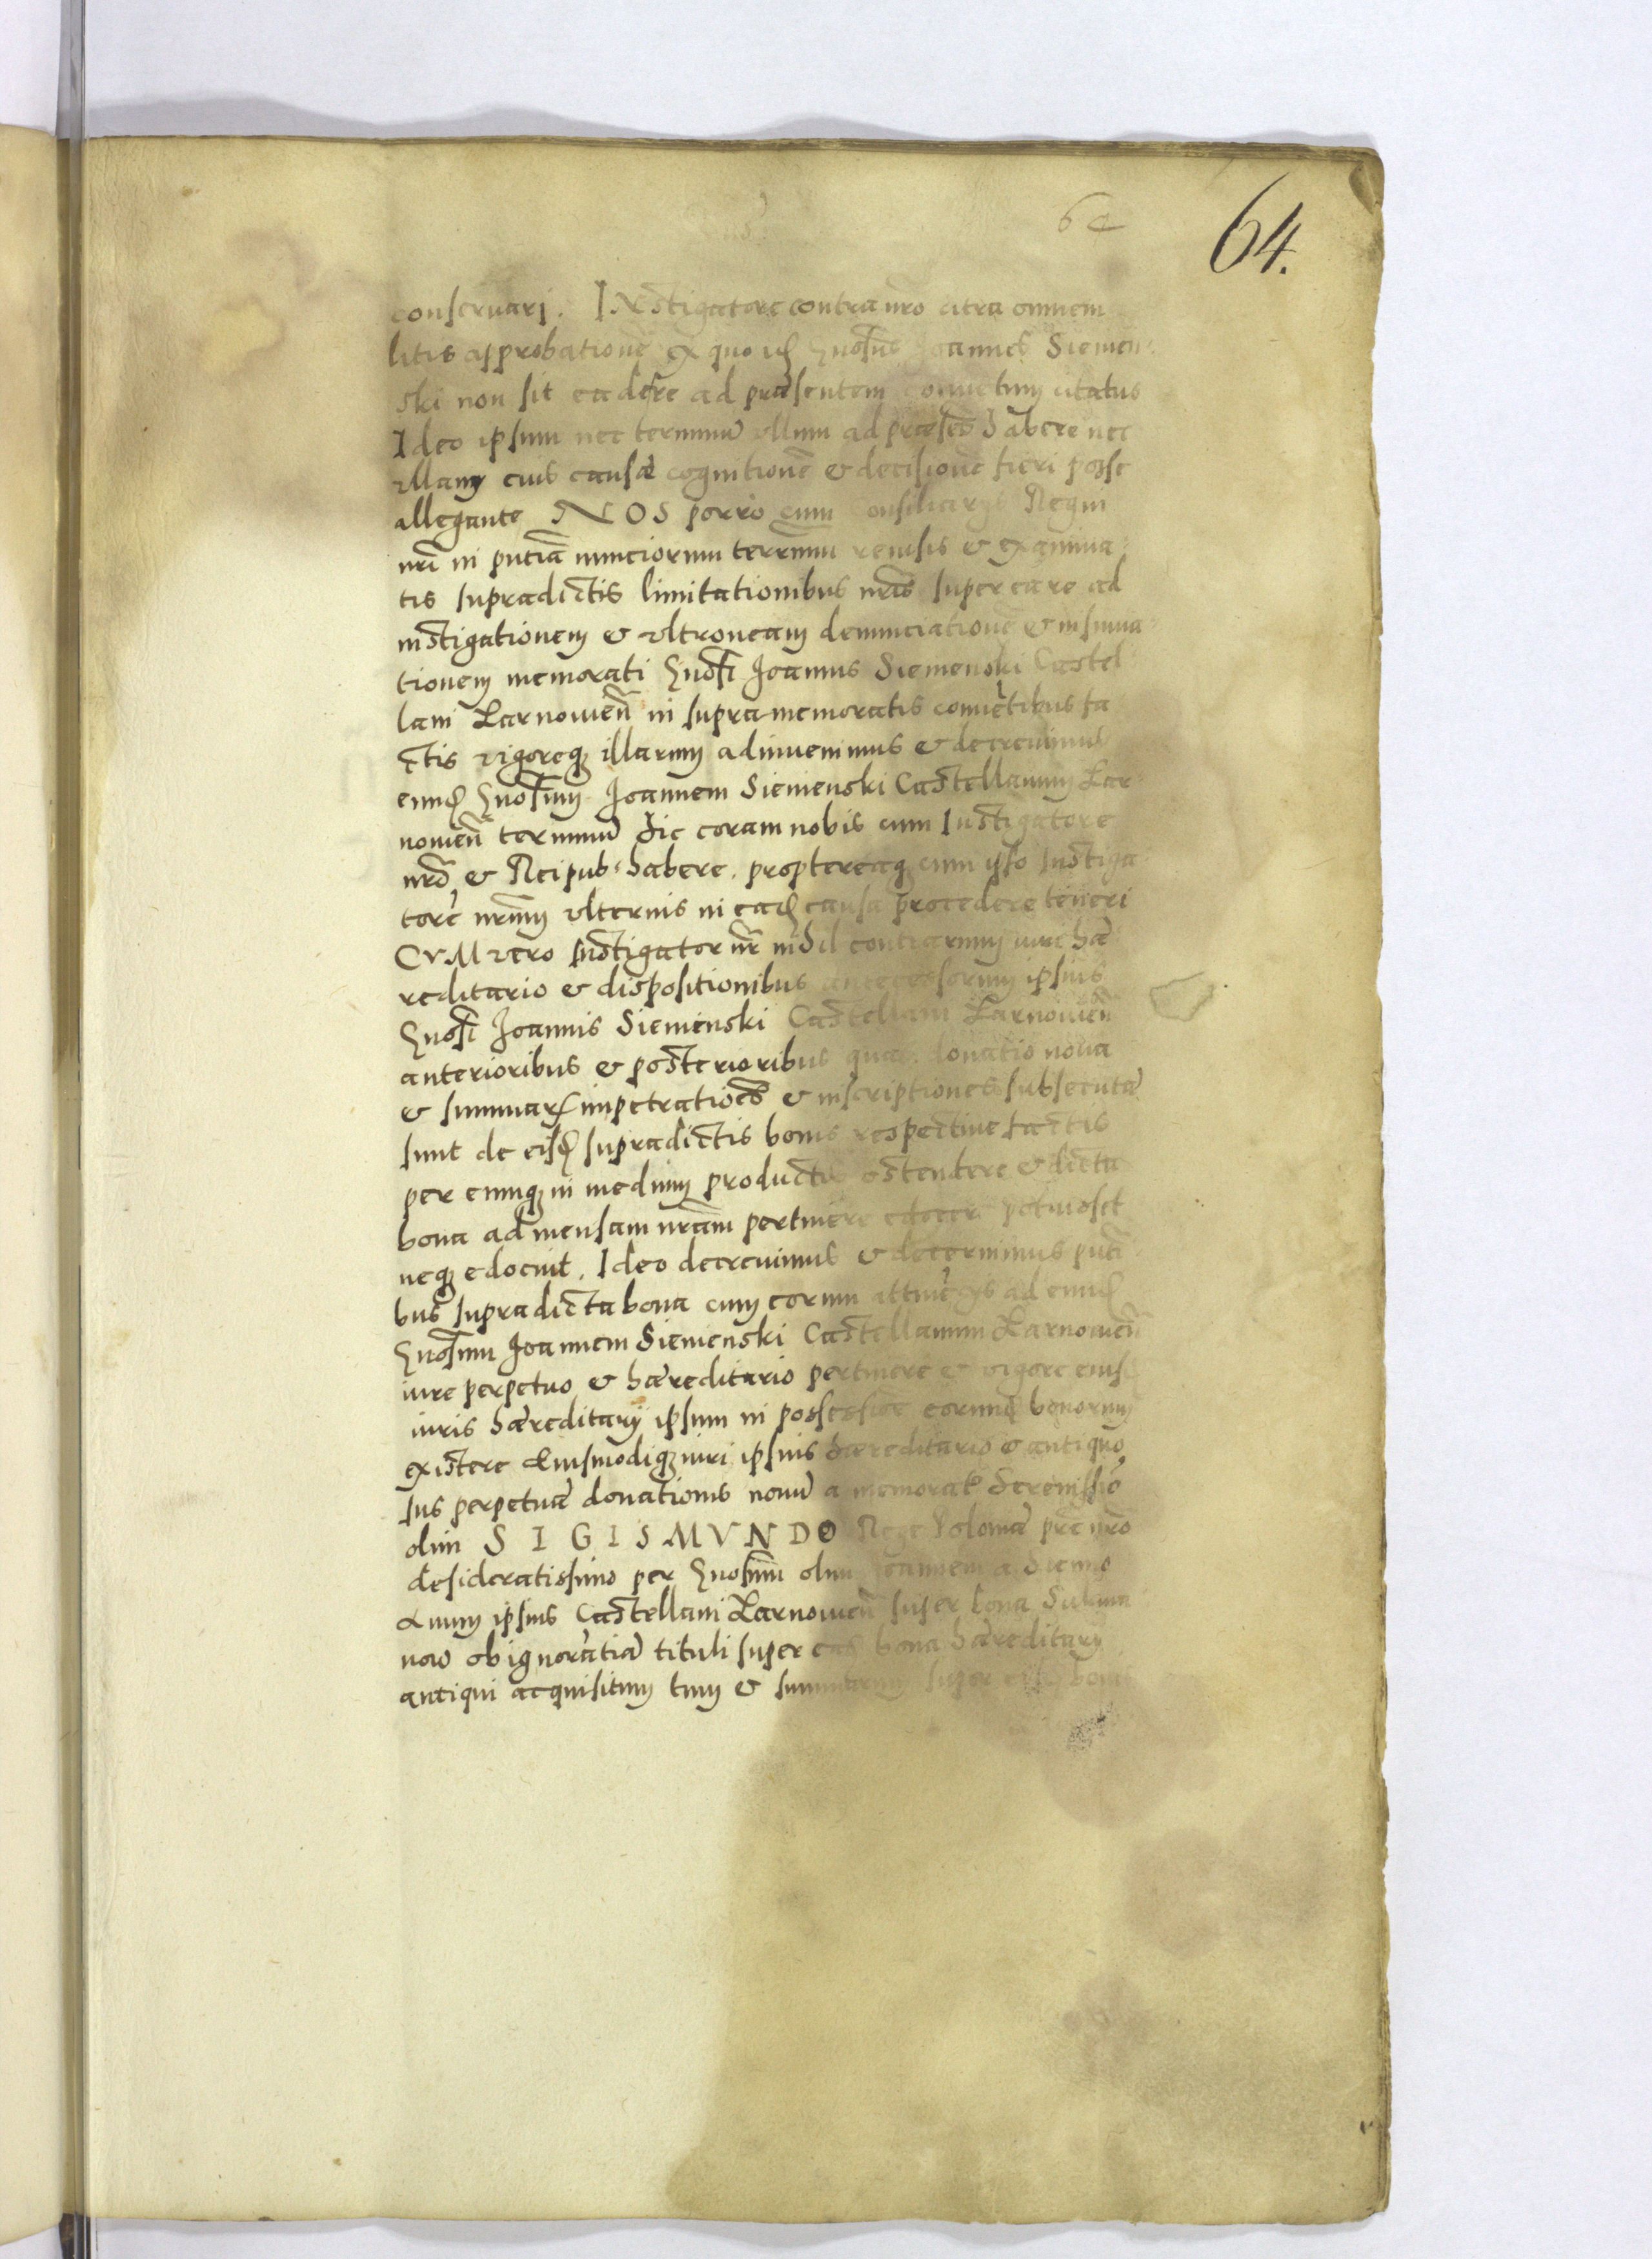 64
64.
conseruarj. INstigatore contra nro citra omnem
litis approbationē ex quo id Gnosus Joannes Siemen-
ski non sit ea de re ad præsentem conuētum citatus
Ideo ipsum nec terminū ullum ad præsēs habere nec
ullam eius causæ cognitionē & decisionē fieri posse
allegante NOS porro cum Consiliarijs Regni
nri in pntiā nunciorum terrarum reuisis & examina-
tis supradictis limitationibus nris super ea re ad
instigationem & ultroneam denunciationē & insinua-
tionem memorati Gnosi Joannis Siemenski Castel
lani Zarnouien̄ in supra memoratis conuētibus fa
ctis vigoreq illarum adinuenimus & decreuimus
eund Gnosum Joannem Siemenski Castellanum Zar-
nouien̄ terminū hic coram nobis cum Instigatore
nrō & Reipub: habere. proptereaq cum ipso Instiga
torē nrum ulterius in ead causa procedere teneri
CVM vero Instigator nr nihil contrarium iuri hæ-
reditario & dispositionibus antecessorum ipsius
Gnosi Joannis Siemenski Castellani Zarnouien̄
anterioribus & posterioribus quas donatio noua
& summar impetratiōes & inscriptiones subsecutæ
sunt de eisd supradictis bonis respectiue factis
per eumq in medium productis ostendere & dicta
bona ad mensam nram pertinere edocere potuisset
neq edocuit. Ideo decreuimus & decernimus pnti
bus supradicta bona cum eorum attinētijs ad eund
Gnosum Joannem Siemenski Castellanum Zarnouien̄
iure perpetuo & hæreditario pertinere & vigore eiusd
iuris hæreditarij ipsum in possessiōe eorund bonorum
existere Eiusmodiq iuri ipsius hæreditario & antiquo
ius perpetuæ donationis nouū a memorato Serenissio
olim SIGISMVNDO Rege Poloniæ pre nro
desideratissimo per Gnosum olim Joannem a Sienno
Auum ipsius Castellani Zarnouien̄ super bona
ob ignorātiā tituli super eas bona hæreditarij
antiqui acquisitum tum & summarum super eisd bonis